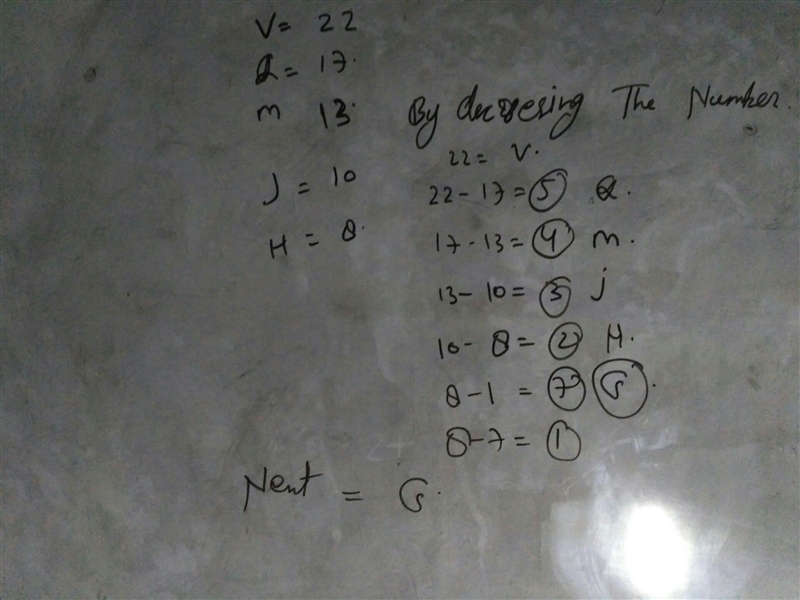 V = 22
Q = 17.
m 13.
J = 10
H = 8.
By decresing The Number.
22 = V.
22 - 17 = 5 Q.
17 - 13 = 4 m.
13 - 10 = 3 j
10 - 8 = 2 H.
8 - 1 = 7 G.
8 - 7 = 1
Next = G.